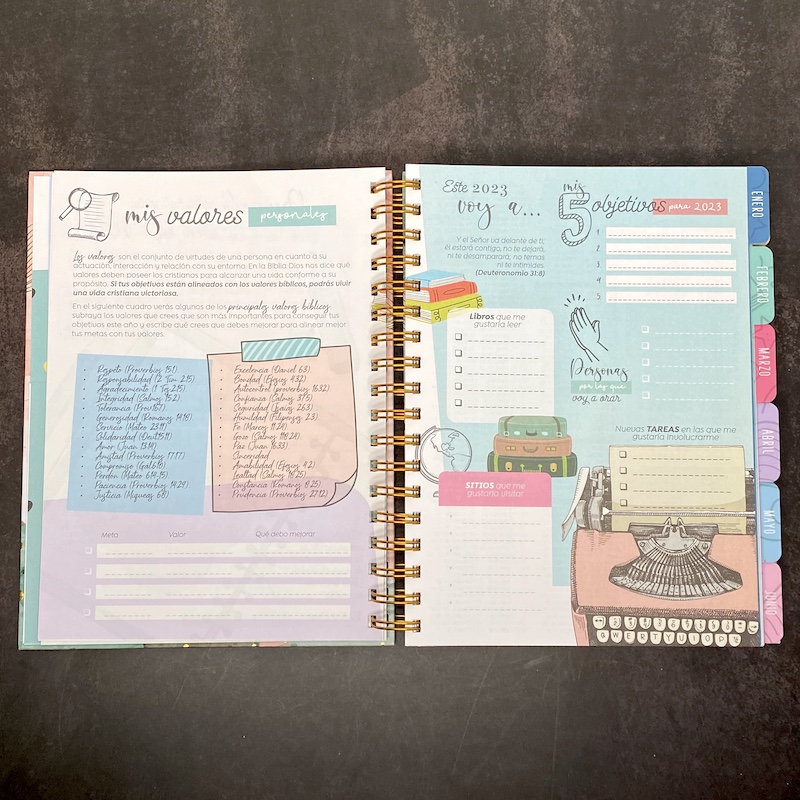 mis valores personales
Los valores son el conjunto de virtudes de una persona en cuanto a su
actuación, interacción y relación con su entorno. En la Biblia Dios nos dice qué
valores deben poseer los cristianos para alcanzar una vida conforme a su
propósito. Si tus objetivos están alineados con los valores bíblicos, podrás vivir
una vida cristiana victoriosa.
En el siguiente cuadro verás algunos de los principales valores bíblicos,
subraya los valores que crees que son más importantes para conseguir tus
objetivos este año y escribe qué crees que debes mejorar para alinear mejor
tus metas con tus valores.
Respeto (Proverbios 15:1)
Responsabilidad (2 Tim. 2:15)
Agradecimiento (1 Tes
Integridad (Salmos 15:2)
Tolerancia (Prov.16:7)
Generosidad (Romanos 14:16)
Servicio (Mateo 23:11)
Solidaridad (Deut.15:11)
Amor (Juan 13:14)
Amistad (Proverbios 17:17)
Compromiso (Gal.6:9)
Perdón (Mateo 6:14-15)
Paciencia (Proverbios 14:29)
Justicia (Miqueas 6:8)
Excelencia (Daniel 6:3)
Bondad (Efesios 4:32)
Autocontrol (proverbios 16:32)
Confianza (Salmos 37:5)
Seguridad (Isaías 26:3)
Humildad (Filipenses 2:3)
Fe (Marcos 11:24)
Gozo (Salmos 118:24)
Paz (Juan 16:33)
Sinceridad
Amabilidad (Efesios 4:2)
Lealtad (Salmos
Constancia (Romanos
Prudencia (Proverbios 27:12)
Meta Valor Qué debo mejorar
Este 2023
voy a...
Y el Señor va delante de ti,
él estará contigo, no te dejará,
ni te desamparará; no temas
ni te intimides.
(Deuteronomio 31:8)
mis
5 objetivos para 2023
1.
2.
3.
4.
5.
Libros que me
gustaría leer
Personas
por las que
voy a orar
Nuevas TAREAS en las que me
gustaría involucrarme
SITIOS que me
gustaría visitar
QWERTYUIOP
ENERO
FEBRERO
MARZO
ABRIL
MAYO
JUNIO